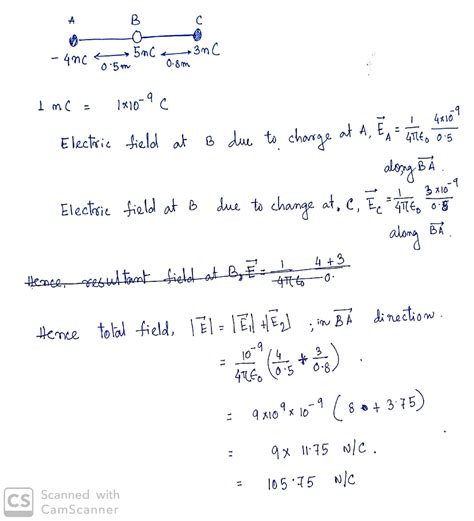 A B C
- 4nC 5nC 3nC
0.5m 0.8m
1 nC = 1x10⁻⁹ C
Electric field at B due to charge at A, E⃗_A = 1/4πϵ₀ 4x10⁻⁹/0.5
along BA.
Electric field at B due to charge at C, E⃗_C = 1/4πϵ₀ 3x10⁻⁹/0.8
along BA.
Hence, resultant field at B, E⃗ = 1/4πϵ₀ 4+3/0.
Hence total field, |E⃗| = |E⃗₁| + |E⃗₂| ; in BA direction.
= 10⁻⁹/4πϵ₀ (4/0.5 + 3/0.8).
= 9x10⁹ x 10⁻⁹ (8 + 3.75)
= 9x 11.75 N/C.
= 105.75 N/C
CS Scanned with
CamScanner